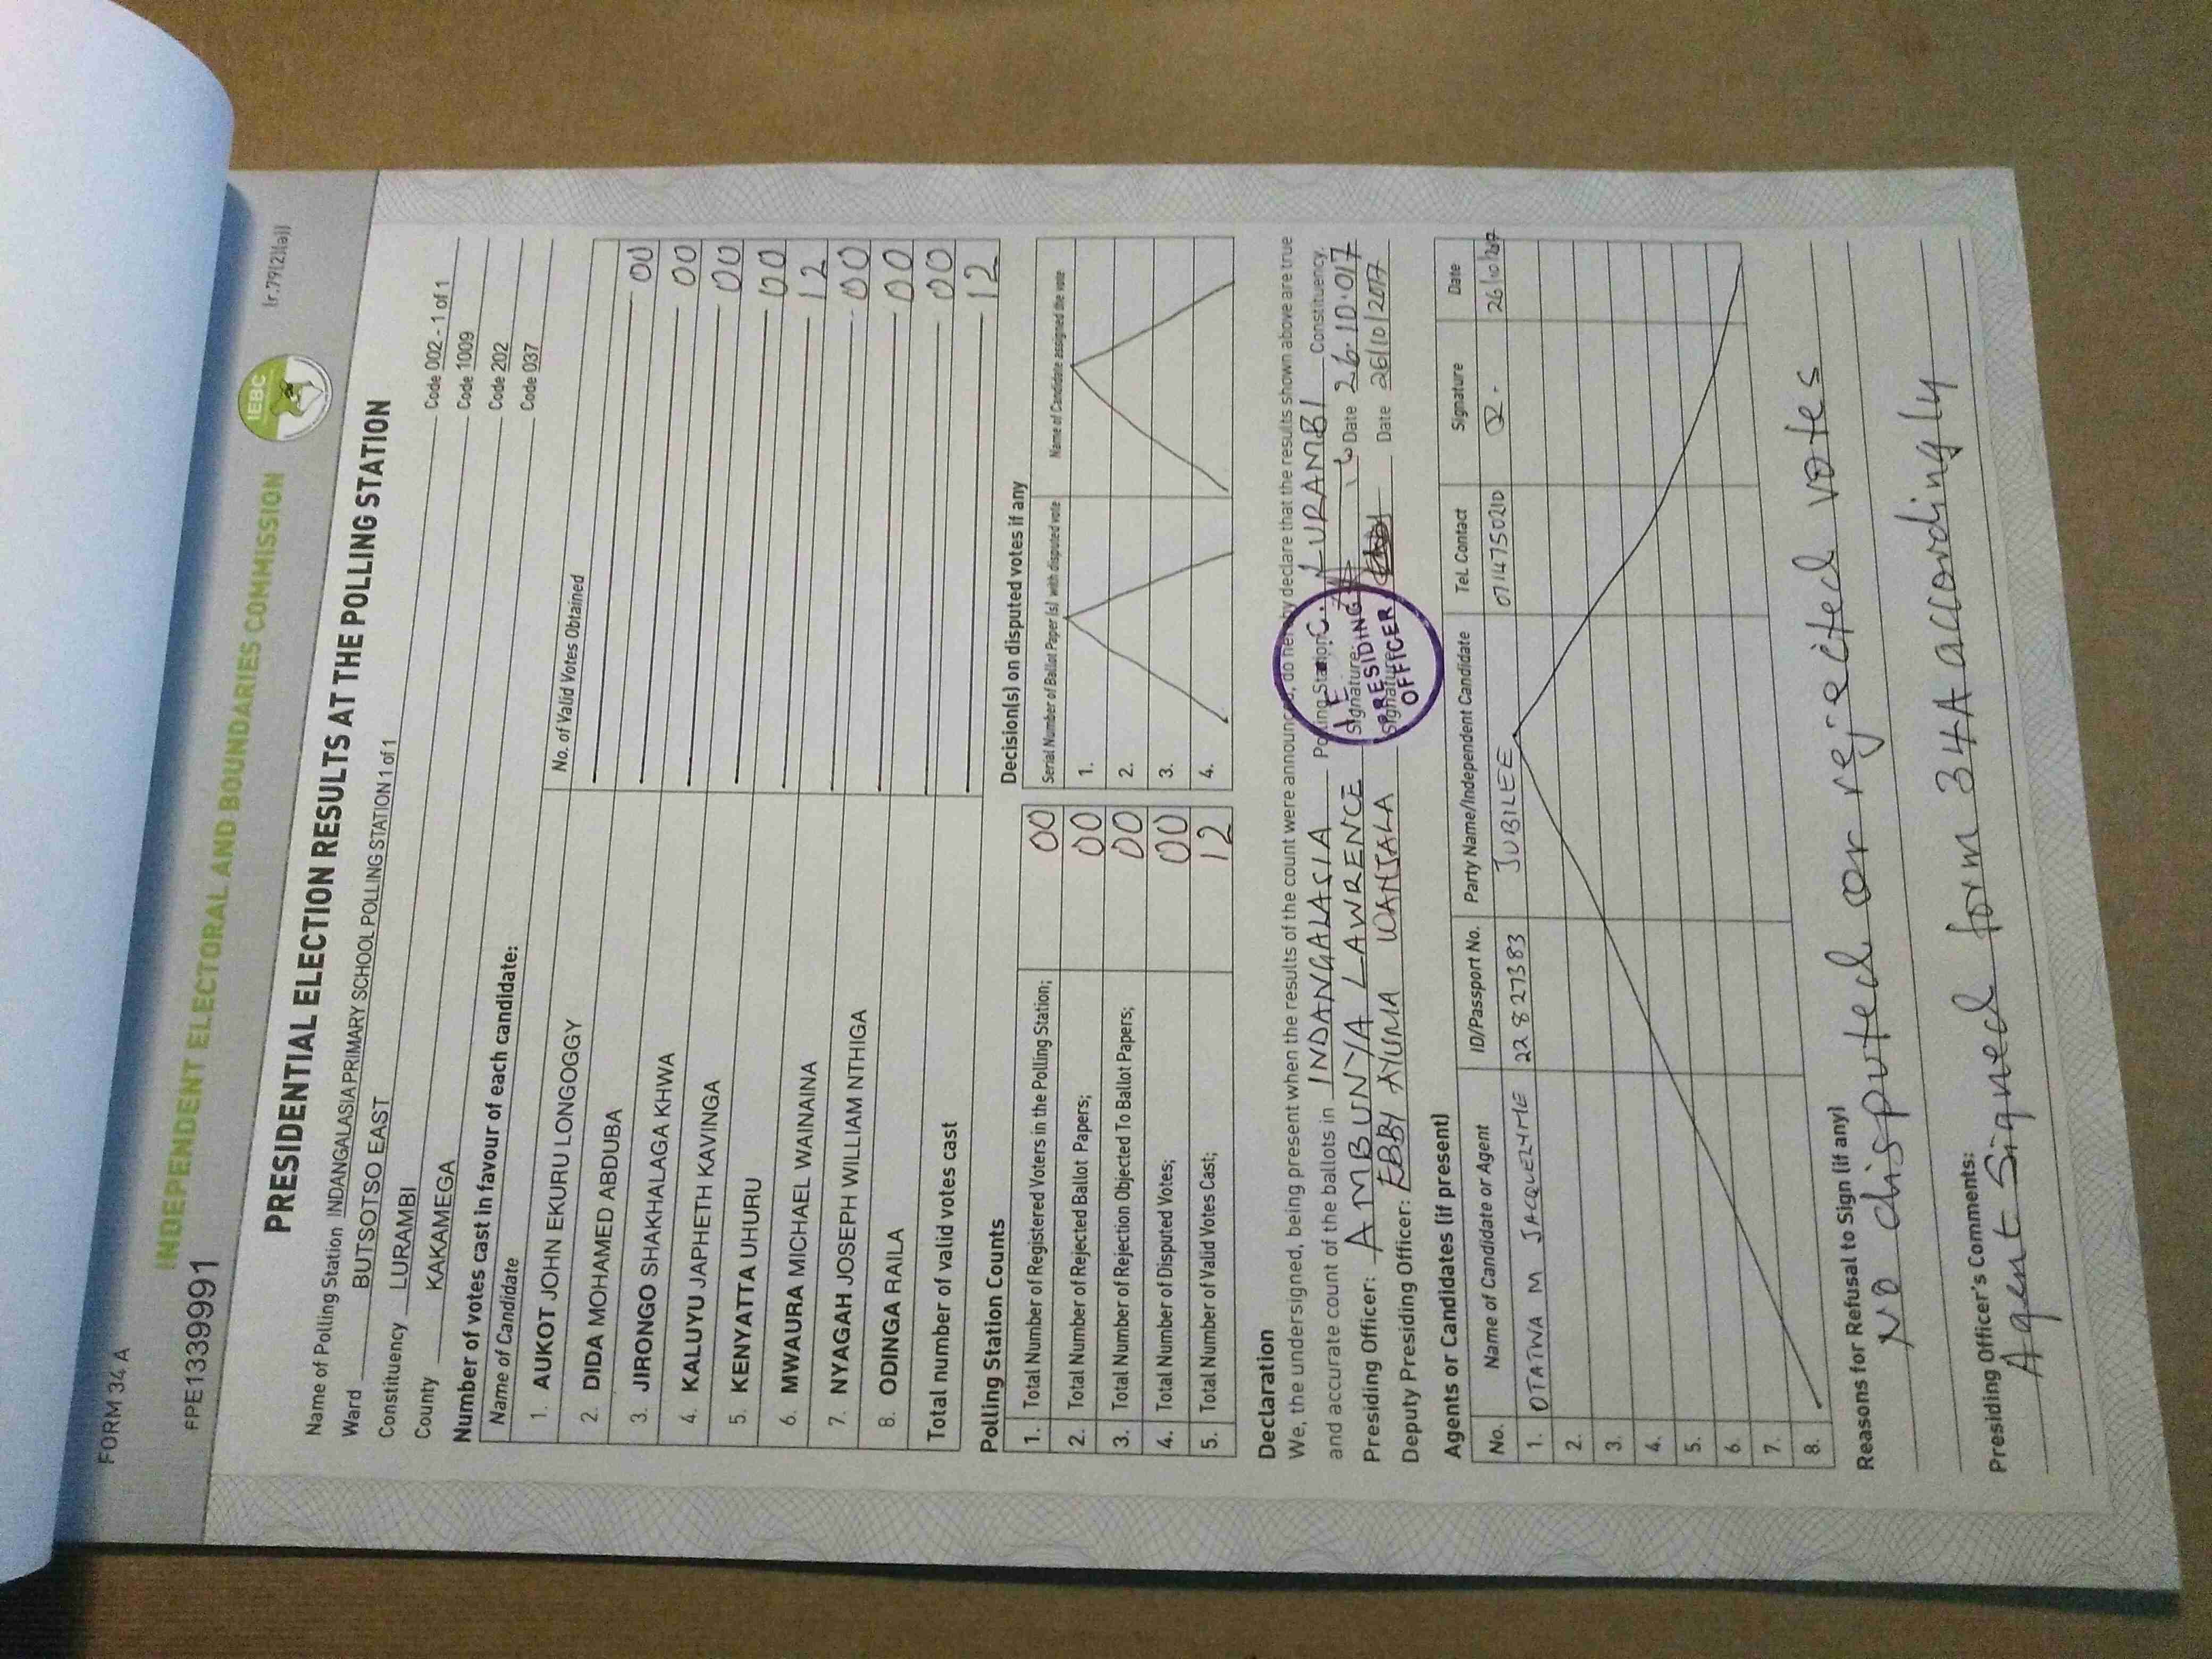 FORM 34 A
FPE1339991
INDEPENDENT ELECTORAL AND BOUNDARIES COMMISSION
IEBC
(r.79(2)(a))
PRESIDENTIAL ELECTION RESULTS AT THE POLLING STATION
Name of Polling Station INDANGALASIA PRIMARY SCHOOL POLLING STATION 1 of 1 Code 002 - 1 of 1
Ward BUTSOTSO EAST Code 1009
Constituency LURAMBI Code 202
County KAKAMEGA Code 037
Number of votes cast in favour of each candidate:
Name of Candidate No. of Valid Votes Obtained
1. AUKOT JOHN EKURU LONGOGGY 00
2. DIDA MOHAMED ABDUBA 00
3. JIRONGO SHAKHALAGA KHWA 00
4. KALUYU JAPHETH KAVINGA 00
5. KENYATTA UHURU 12
6. MWAURA MICHAEL WAINAINA 00
7. NYAGAH JOSEPH WILLIAM NTHIGA 00
8. ODINGA RAILA 00
Total number of valid votes cast 12
Polling Station Counts
1. Total Number of Registered Voters in the Polling Station; 00
2. Total Number of Rejected Ballot Papers; 00
3. Total Number of Rejection Objected To Ballot Papers; 00
4. Total Number of Disputed Votes; 00
5. Total Number of Valid Votes Cast; 12
Decision(s) on disputed votes if any
Serial Number of Ballot Paper (s) with disputed vote Name of Candidate assigned the vote
1.
2.
3.
4.
Declaration
We, the undersigned, being present when the results of the count were announced, do hereby declare that the results shown above are true
and accurate count of the ballots in INDANGALASIA Polling Station LURAMBI Constituency.
Presiding Officer: AMBUNYA LAWRENCE Signature: Date 26.10.017
Deputy Presiding Officer: EBBY AYUMA WANJALA Signature: Date 26/10/2017
PRESIDING
OFFICER
Agents or Candidates (if present)
No. Name of Candidate or Agent ID/Passport No. Party Name/Independent Candidate Tel. Contact Signature Date
1. OTATWA M 22827383 JUBILEE 0714750210 26/10/2017
2.
3.
4.
5.
6.
7.
8.
Reasons for Refusal to Sign (if any)
No disputed or rejected votes
Presiding Officer's Comments:
Agent Signed form 34A accordingly